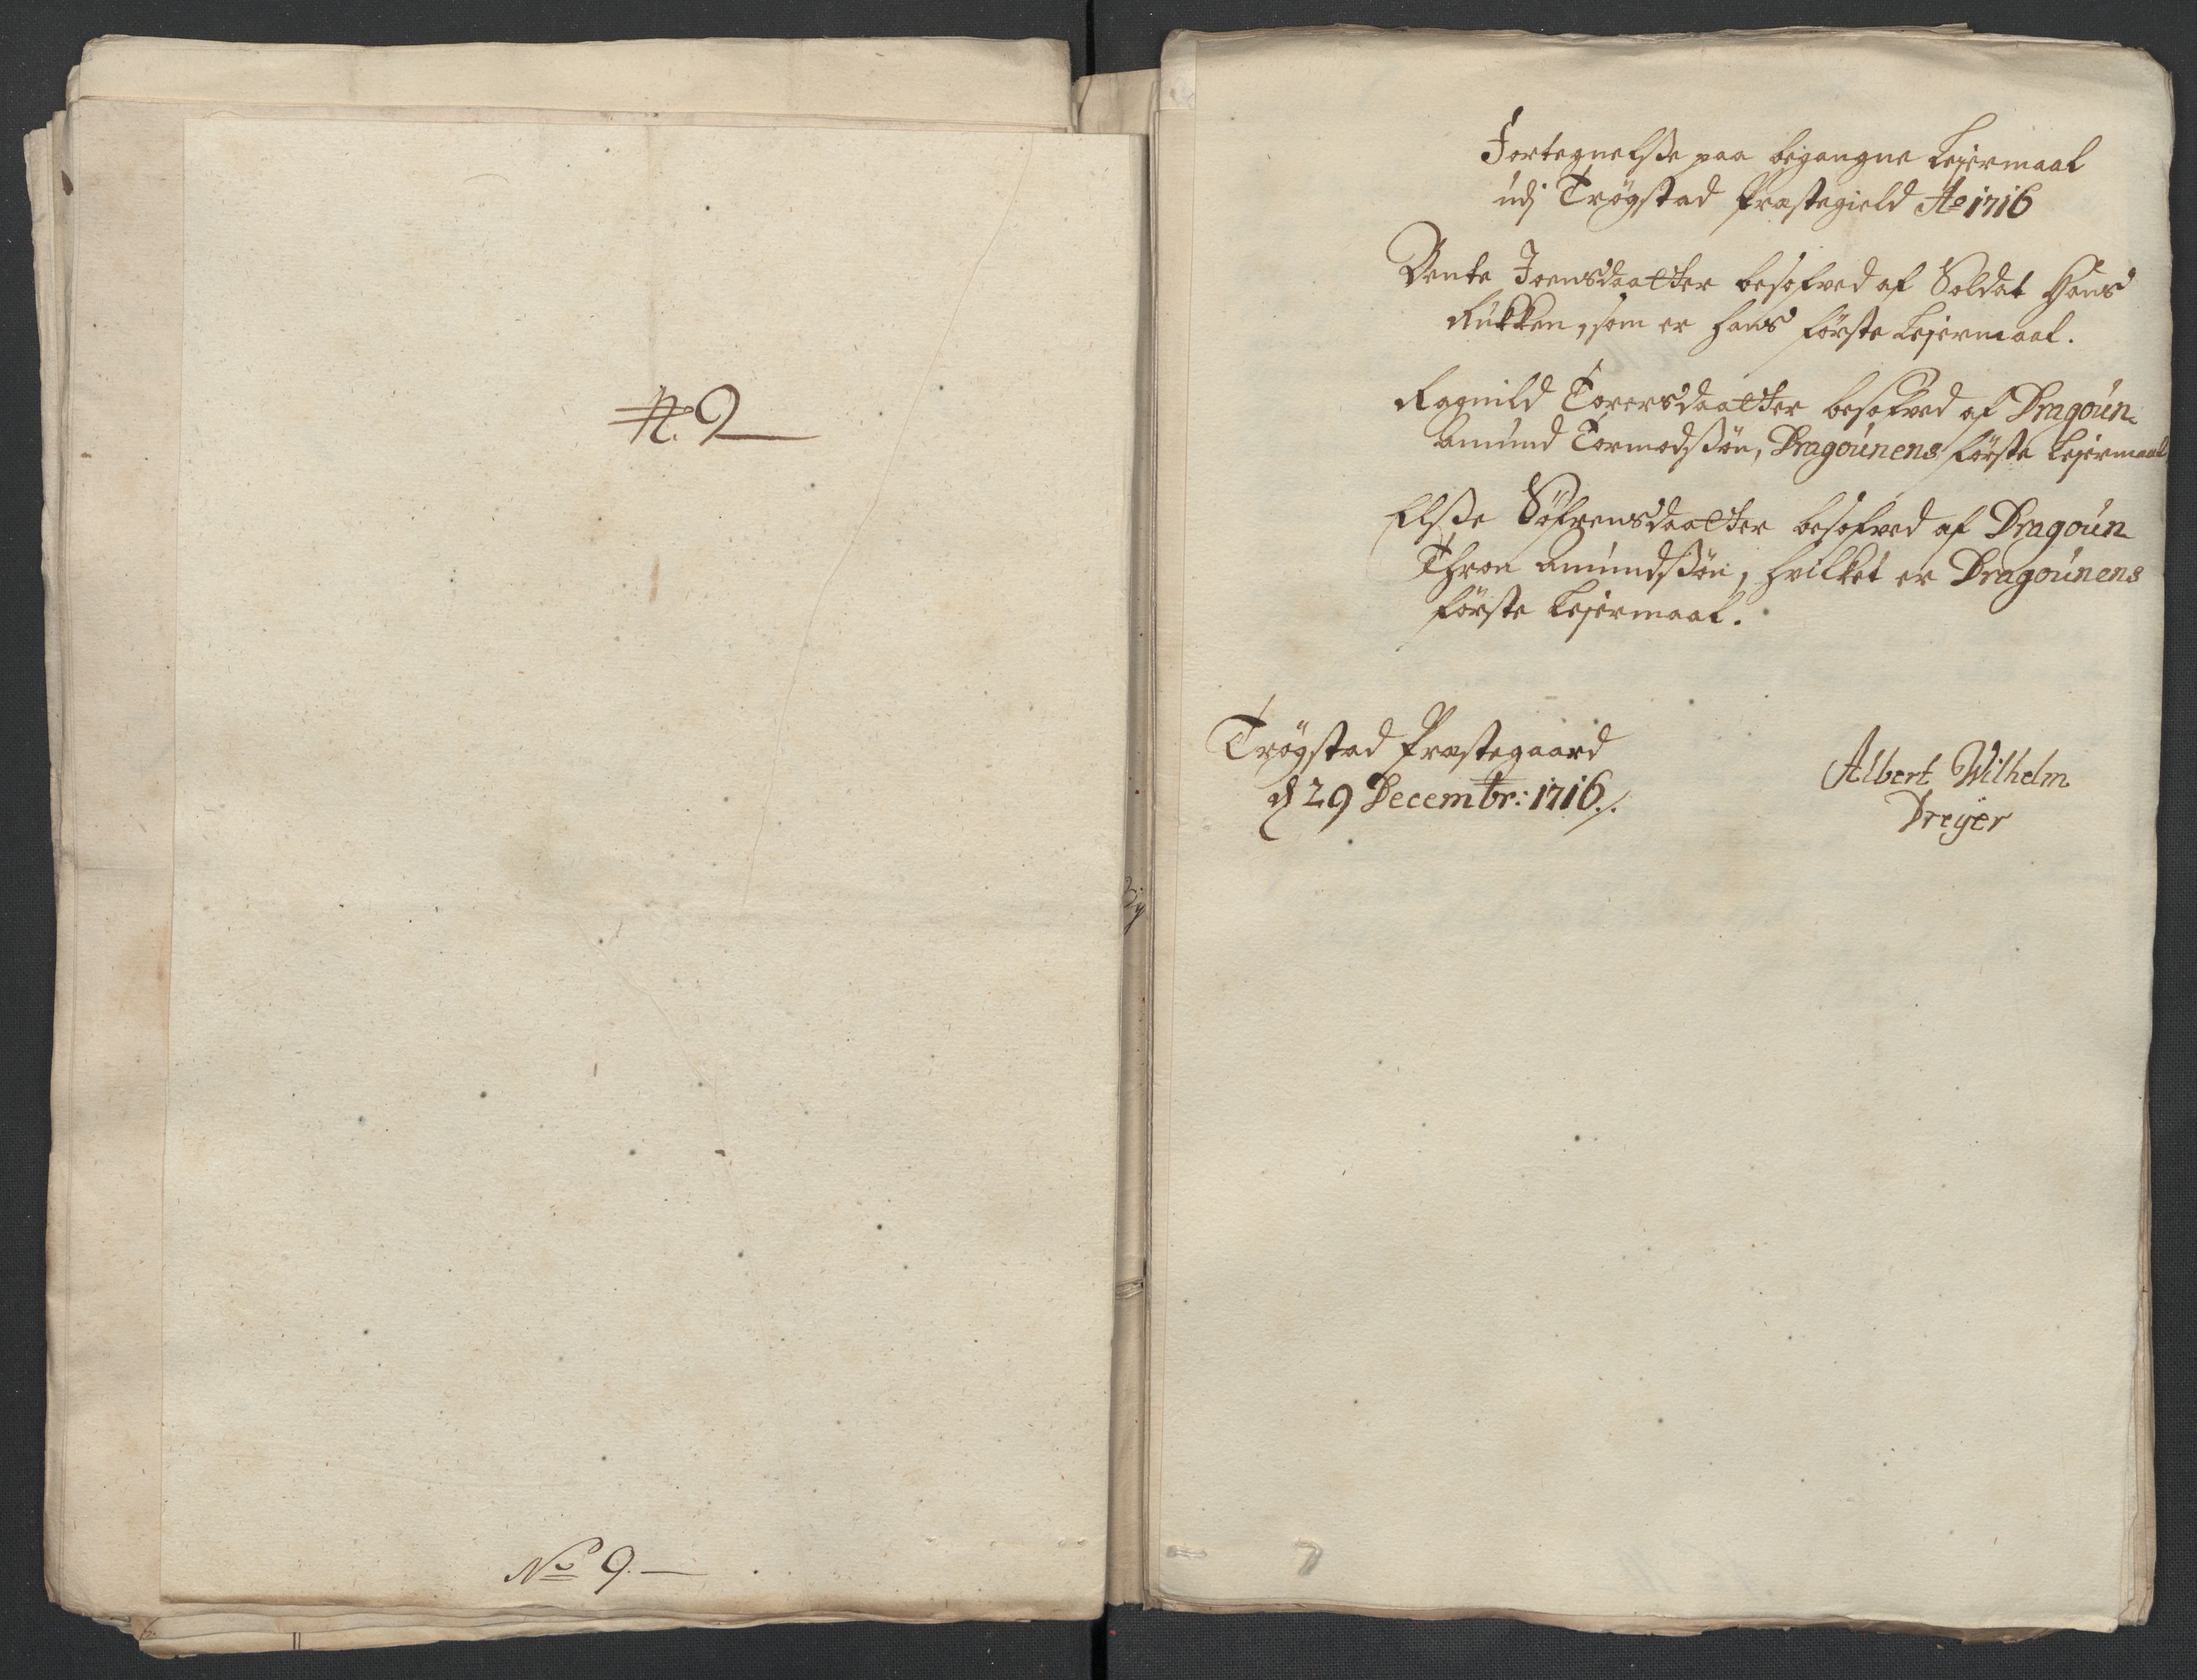 N. 9
No 9.
Fortegnelsße paa begangne Lejermaal
udj Trögstad Præstegield Ao 1716
Dente Joensdaatter besofved af Soldat Hans
Kükken, som er hans förste Lejermaal.
Ragnild Torersdaatter besofved af Dragoun
Amund Tormodsßön, Dragounens förste Lejermaal
Elsße Söfrensdaatter besofved af Dragoun
Thron Amundsßön, hvilket er Dragounens
förste Lejermaal.
Trögstad Præstegaard
d 29 Decembr: 1716./.
Albert Wilhelm
Dreÿer